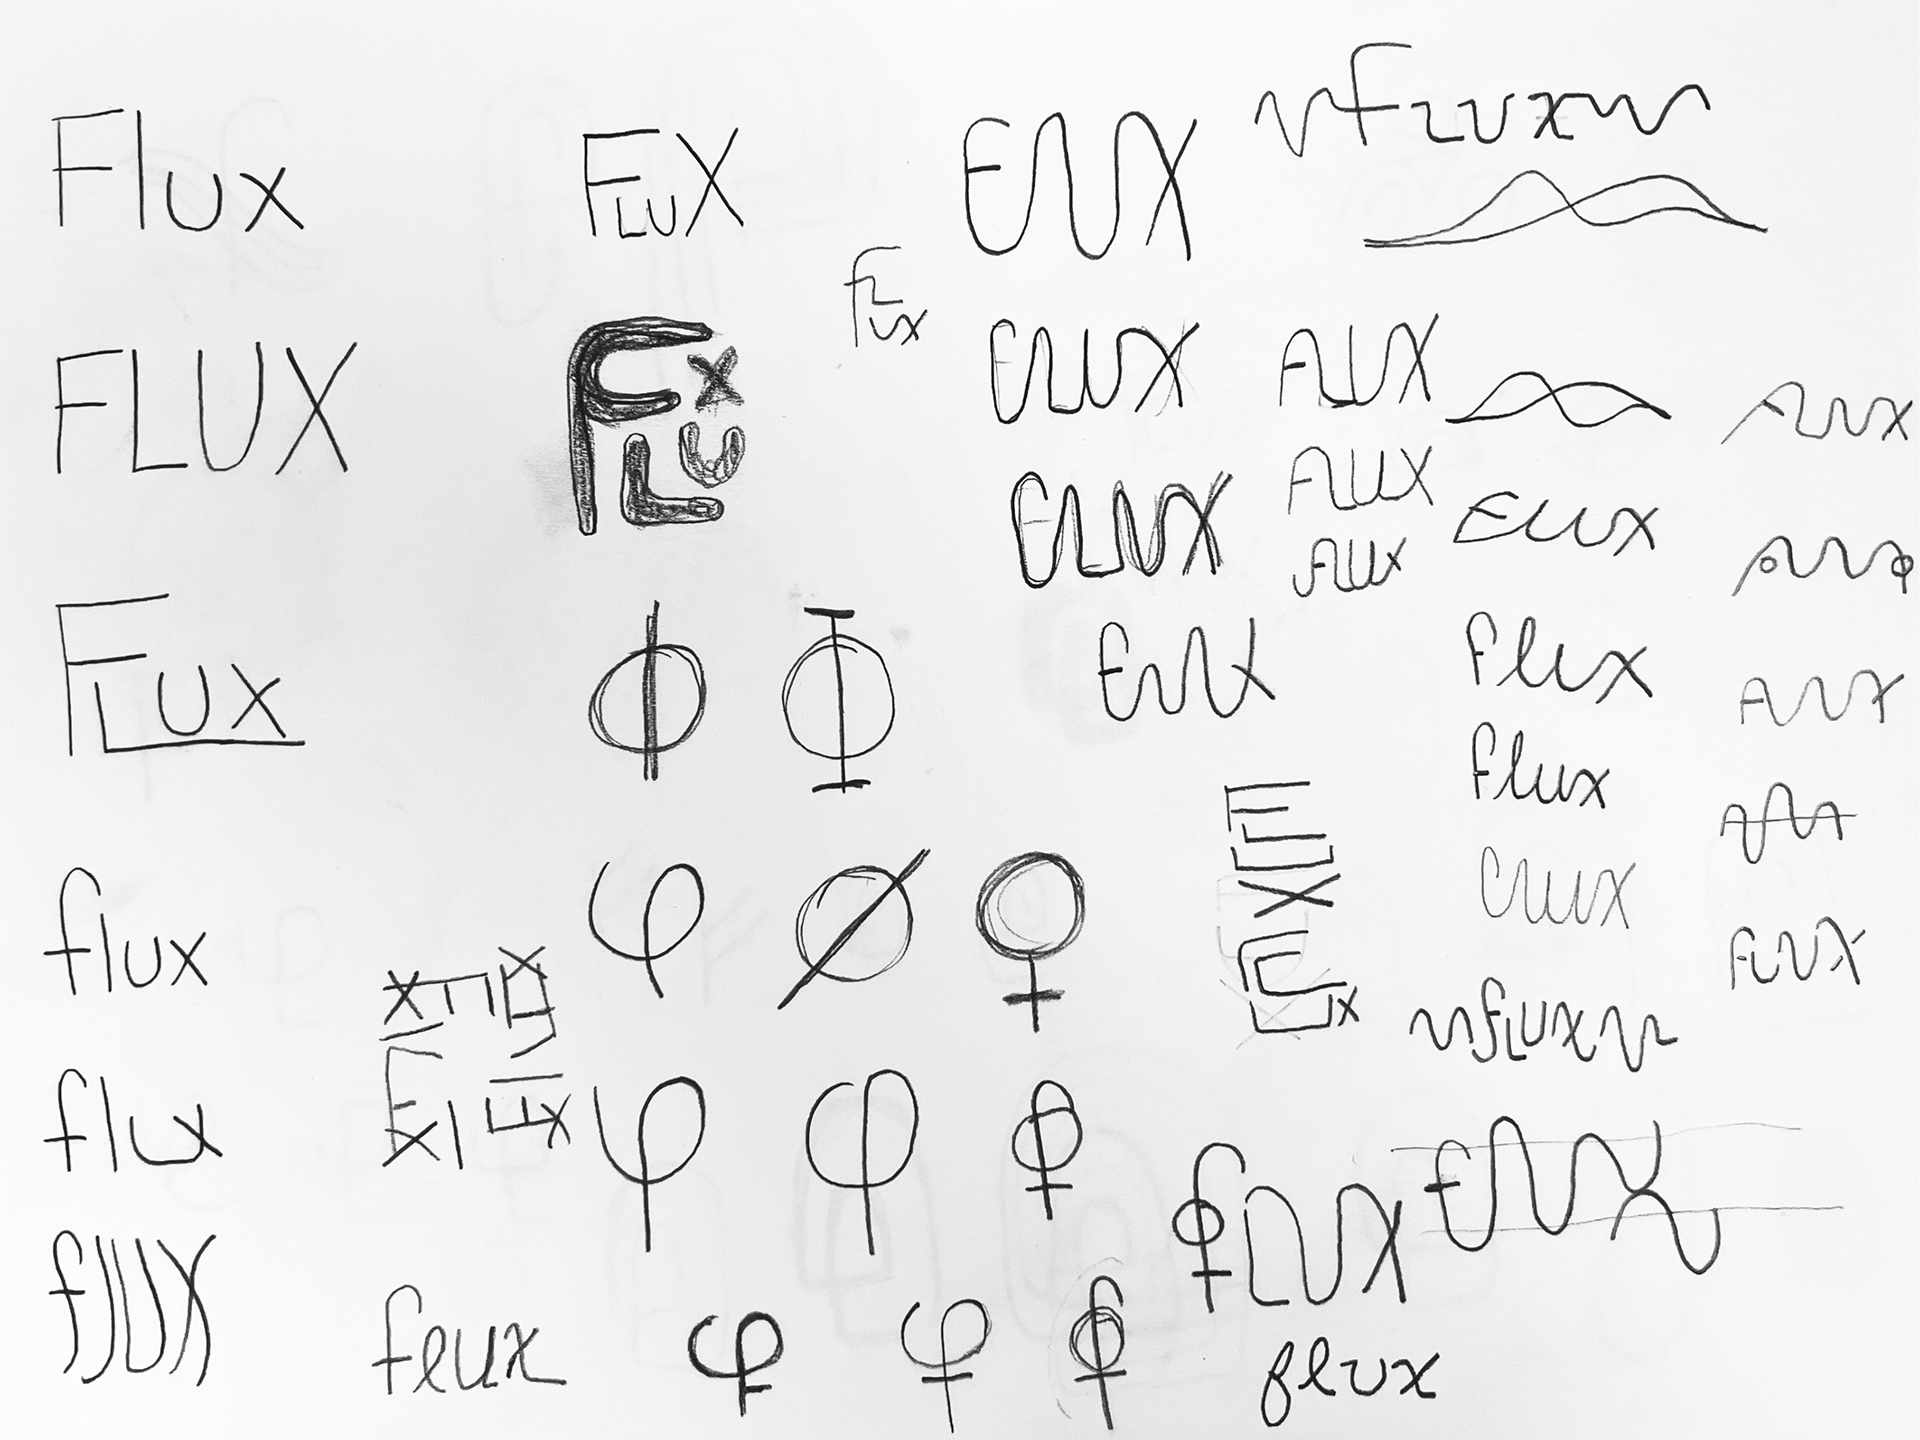 Flux
FLUX
FLUX
flux
FLUX
FLUX
flux
FLUX
FLUX
FLUX
FLUX
FLUX
FLUX
FLUX
FLUX
FLUX
FLUX
FLUX
FLUX
Φ
Φ
flux
FLUX
flux
φ
Ø
♀
flux
FLUX
flux
FLUX
flux
φ
φ
FLUX
FLUX
fLUX
flux
φ
φ
flux